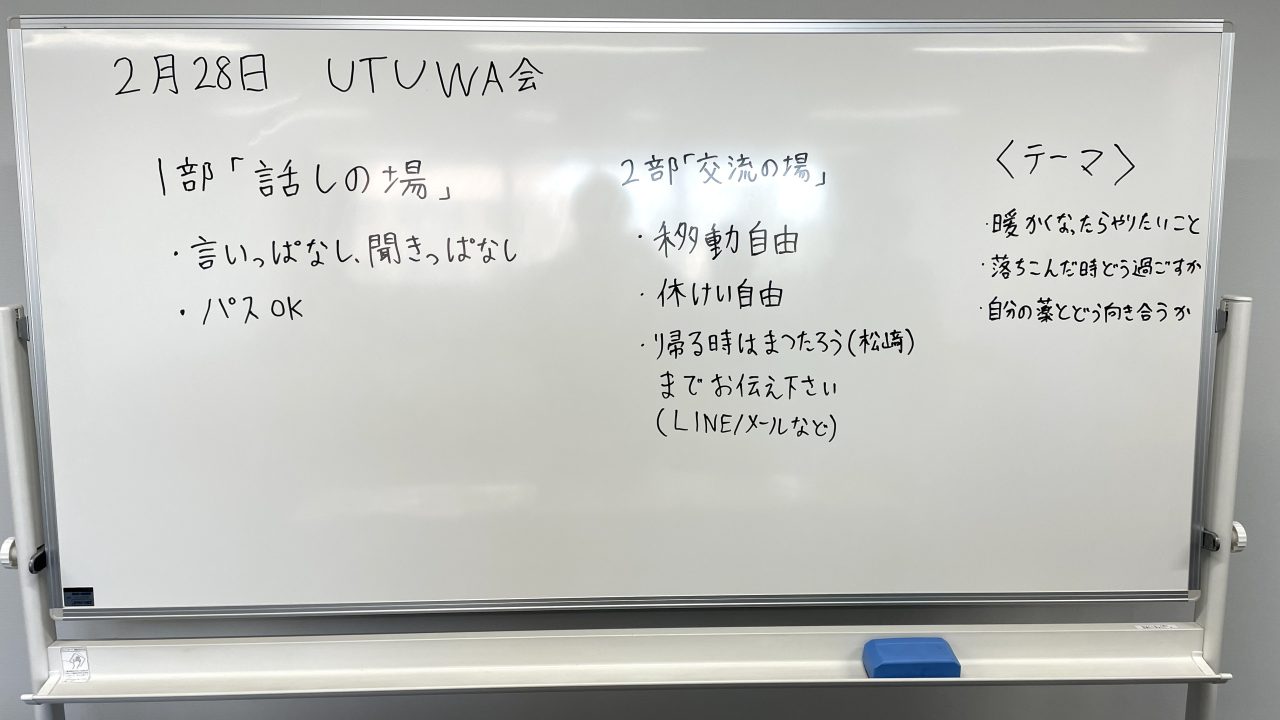 2月28日 UTUWA会
1部「話しの場」
・言いっぱなし、聞きっぱなし
・パスOK
2部「交流の場」
・移動自由
・休けい自由
・帰る時はまつたろう(松﨑)
までお伝え下さい
(LINE/メールなど)
〈テーマ〉
・暖かくなったらやりたいこと
・落ちこんだ時どう過ごすか
・自分の薬とどう向き合うか